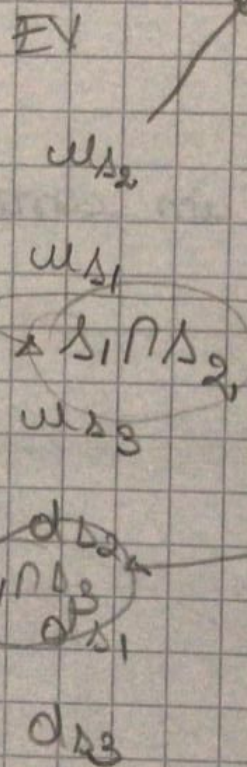 EV
us₂
us₁
s₁∩s₂
us₃
ds₂
∩s₃
ds₁
ds₃